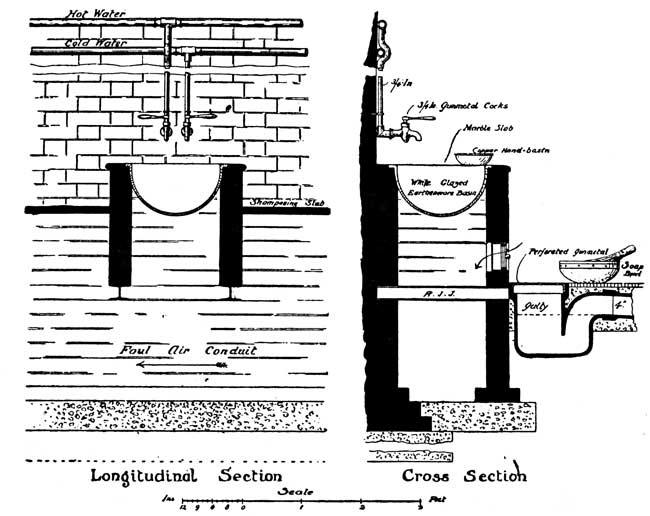 Hot Water
Cold Water
Shampooing Slab
Foul Air Conduit
Longitudinal Section
3/4 In
3/4 In Gunmetal Cocks
Marble Slab
Copper Hand-basin
White Glazed
Earthenware Basin
Perforated Gunmetal
Soap
Bowl
R.I.J.
Gully
4"
Cross Section
Scale
Ins 12 9 6 3 0 1 2 3 Feet